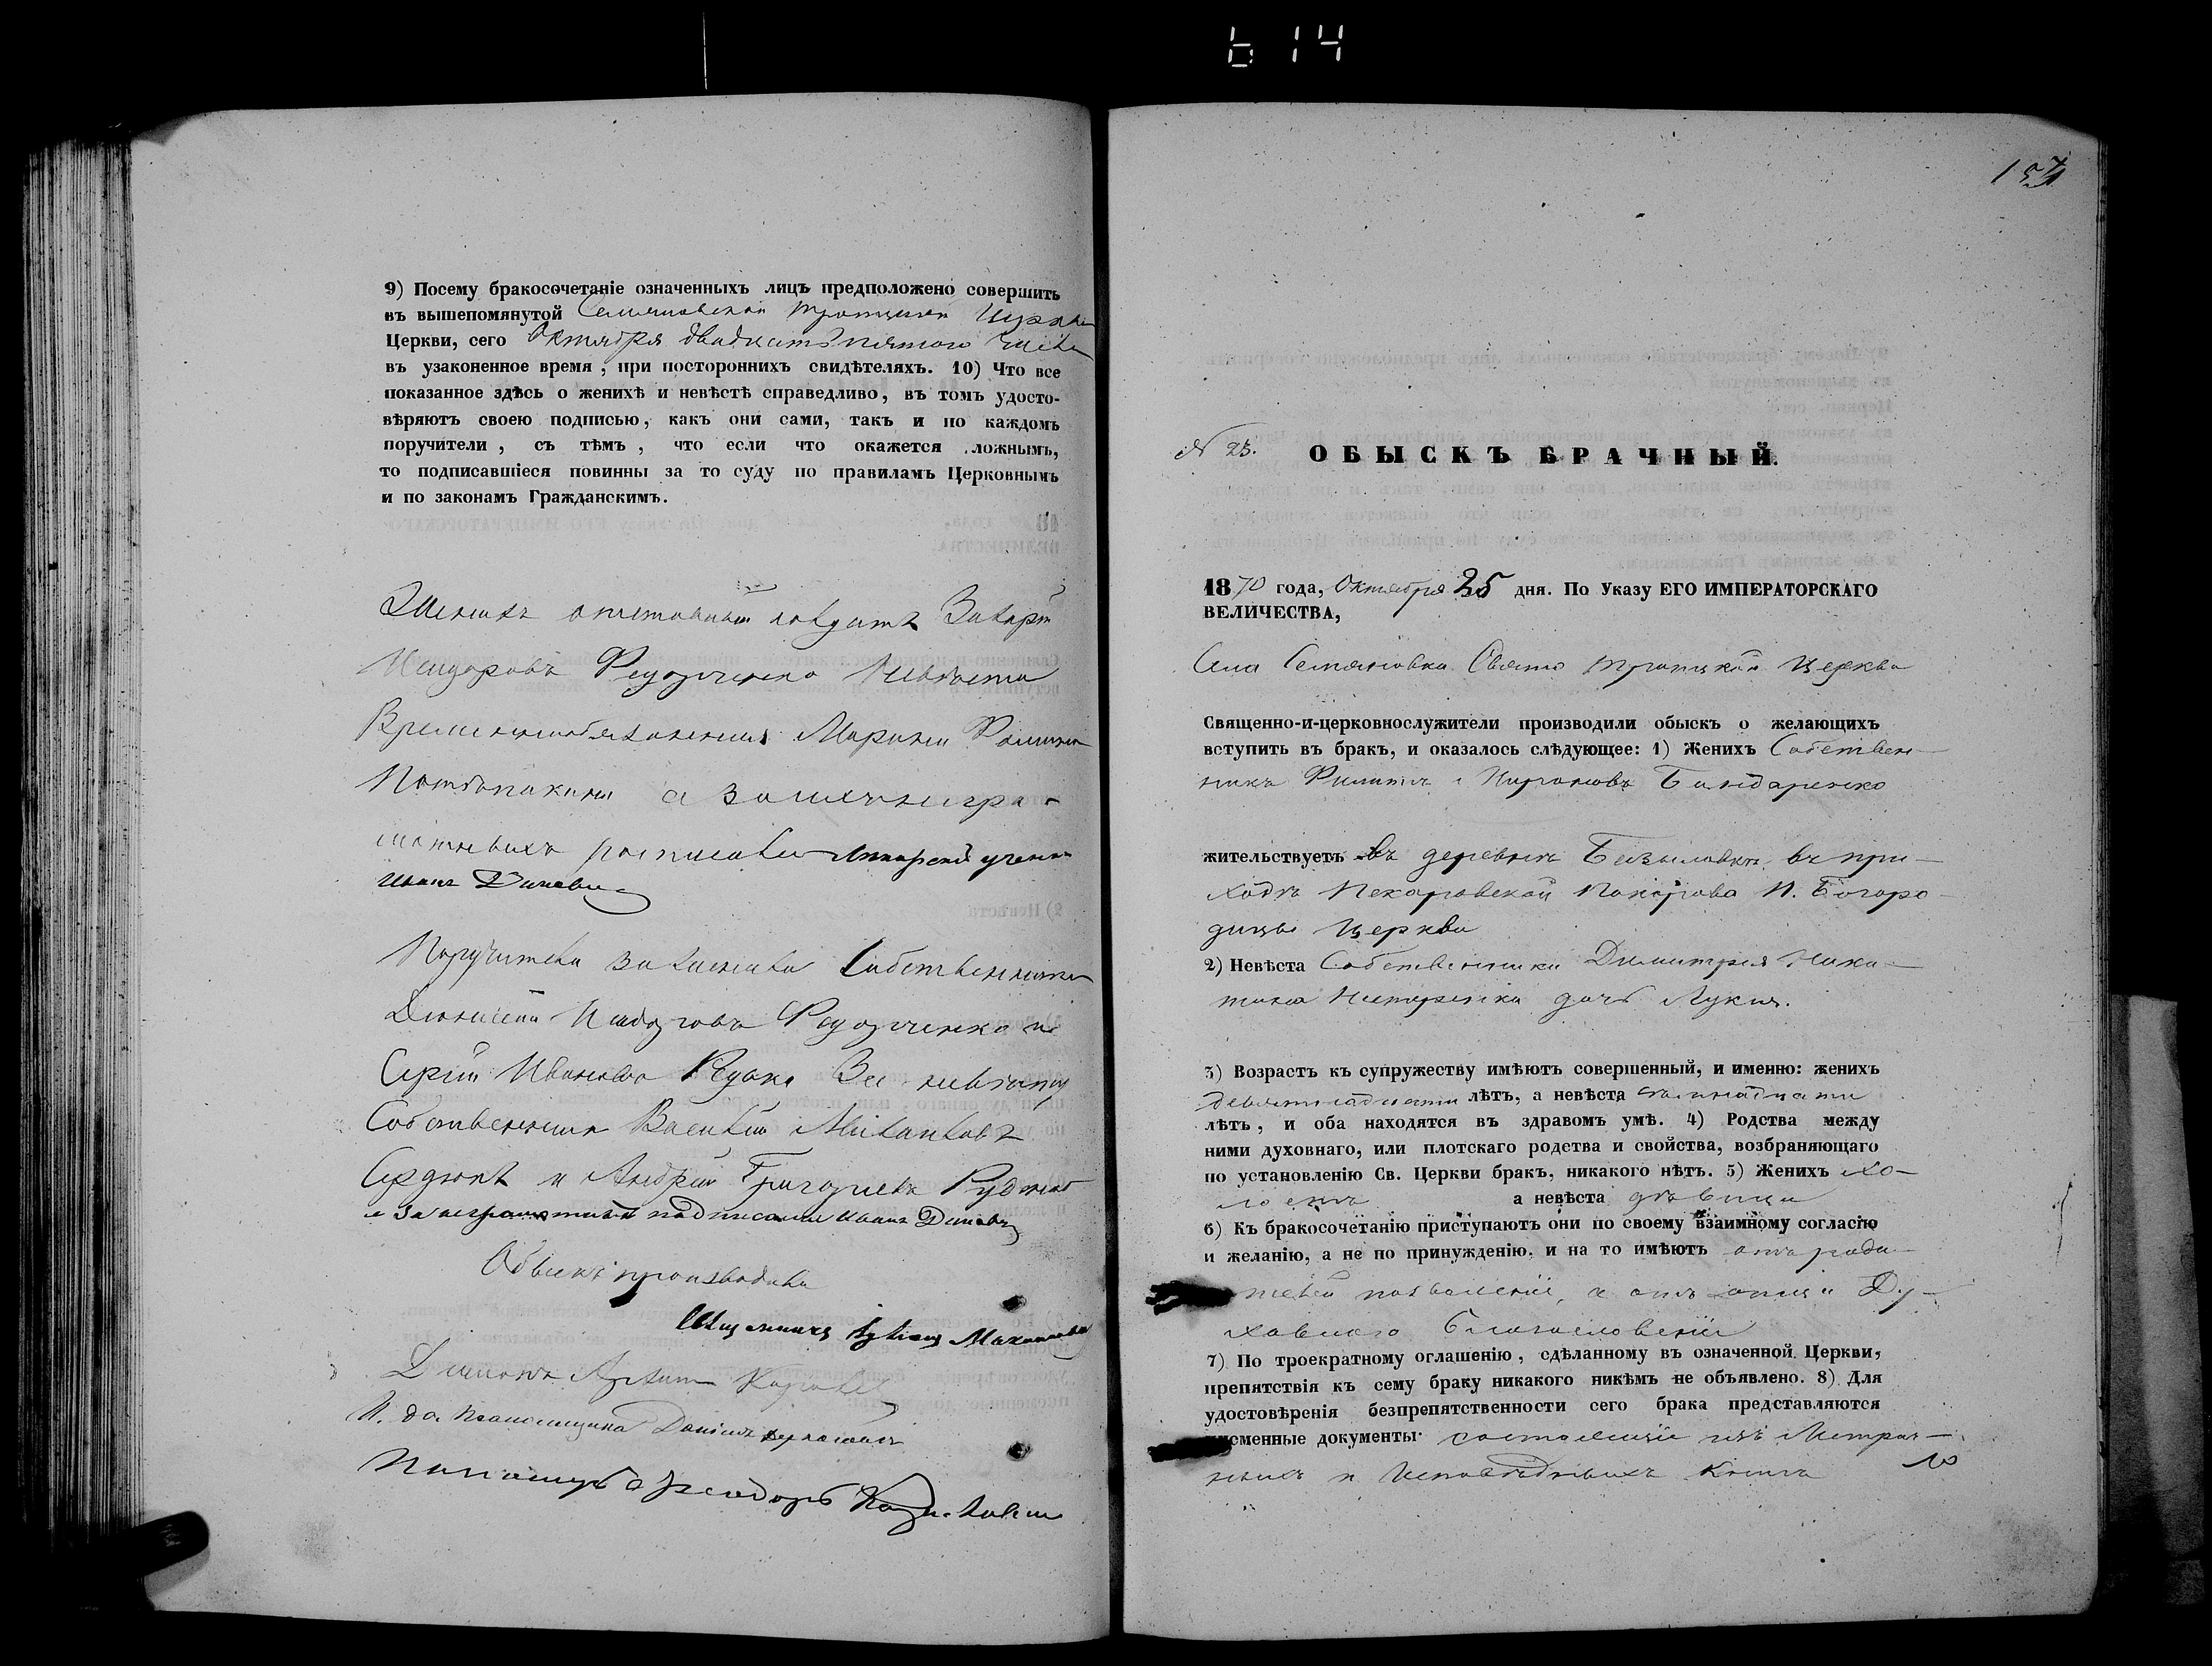 614
9) Посему бракосочетаніе означенныхъ лицъ предположено совершить
въ вышепомянутой Семяновской Троицкой
Церкви, сего Октября двадцать пятого числа
въ узаконенное время, при постороннихъ свидѣтеляхъ. 10) Что все
показанное здѣсь о женихѣ и невѣстѣ справедливо, въ томъ удосто-
вѣряютъ своею подписью, какъ они сами, такъ и по каждомъ
поручители, съ тѣмъ, что если что окажется ложнымъ,
то подписавшіеся повинны за то суду по правиламъ Церковнымъ
и по законамъ Гражданскимъ.
Женихъ отставный солдатъ Захарій
Исидоровъ Федорченко Невѣста
Временнообязанная Марина
а за ихъ негра-
мотныхъ росписался учен
Иванъ
Поручители за жениха Собственники
Діонисій Исидоровъ Федорченко и
Сергій Ивановъ Редка За невѣсту
Собственники Василій Михайловъ
Сердюкъ и Андрей Григорьевъ
а за неграмотныхъ подписался Иванъ
Обыскъ производили
Священникъ
Діаконъ
И. до. Псаломщика Даніилъ
Пономарь Феодоръ
157
№ 23. ОБЫСКЪ БРАЧНЫЙ.
1870 года, Октября 25 дня. По Указу ЕГО ИМПЕРАТОРСКАГО
ВЕЛИЧЕСТВА,
Села Семяновка Свято Троицкой Церкви
Священно-и-церковнослужители производили обыскъ о желающихъ
вступить въ бракъ, и оказалось слѣдующее: 1) Женихъ Собствен-
никъ Филиппъ Мироновъ Бандаренко
жительствуетъ въ деревнѣ въ при-
ходѣ Пекаровской Покрова П. Богоро-
дицы Церкви
2) Невѣста Собственника Димитрія Ники-
тина Нестеренка дочь Лукія.
3) Возрастъ къ супружеству имѣютъ совершенный, и именно: женихъ
девятнадцати лѣтъ, а невѣста
лѣтъ, и оба находятся въ здравомъ умѣ. 4) Родства между
ними духовнаго, или плотскаго родства и свойства, возбраняющаго
по установленію Св. Церкви бракъ, никакого нѣтъ. 5) Женихъ хо-
лостъ а невѣста дѣвица
6) Къ бракосочетанію приступаютъ они по своему взаимному согласію
и желанію, а не по принужденію, и на то имѣютъ отъ роди-
телей позволеніе, а отъ отца Ду-
ховнаго благословеніе
7) По троекратному оглашенію, сдѣланному въ означенной Церкви,
препятствія къ сему браку никакого никѣмъ не объявлено. 8) Для
удостовѣренія безпрепятственности сего брака представляются
письменные документы: состоящіе изъ Метрич-
ныхъ и Исповѣдныхъ книгъ